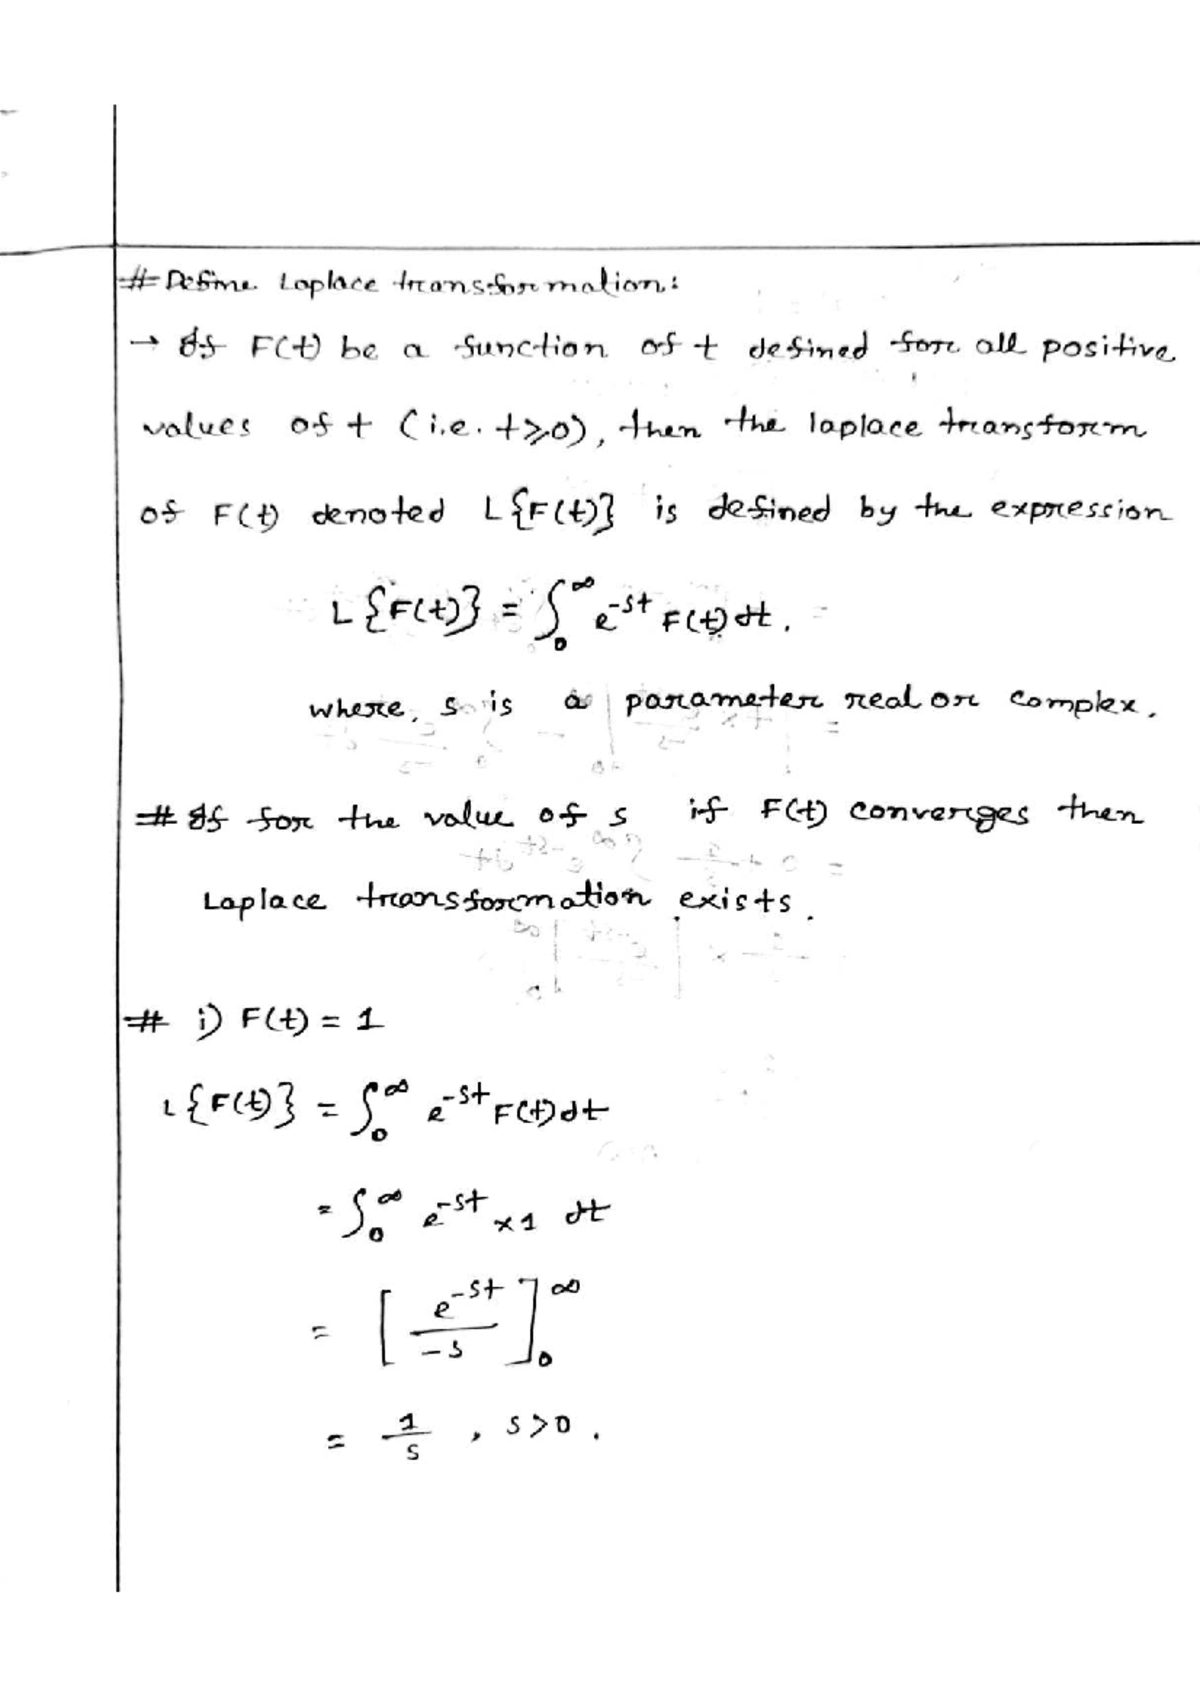 # Define Laplace transformation:
→ If F(t) be a function of t defined for all positive
values of t (i.e. t≥0), then the laplace transform
of F(t) denoted L{F(t)} is defined by the expression
L{F(t)} = ∫₀^∞ e^{-st} F(t) dt.
where, s is a parameter real or complex.
# If for the value of s if F(t) converges then
Laplace transformation exists.
# i) F(t) = 1
L{F(t)} = ∫₀^∞ e^{-st} F(t) dt
= ∫₀^∞ e^{-st} × 1 dt
= [e^{-st}/-s]₀^∞
= 1/s , s>0.